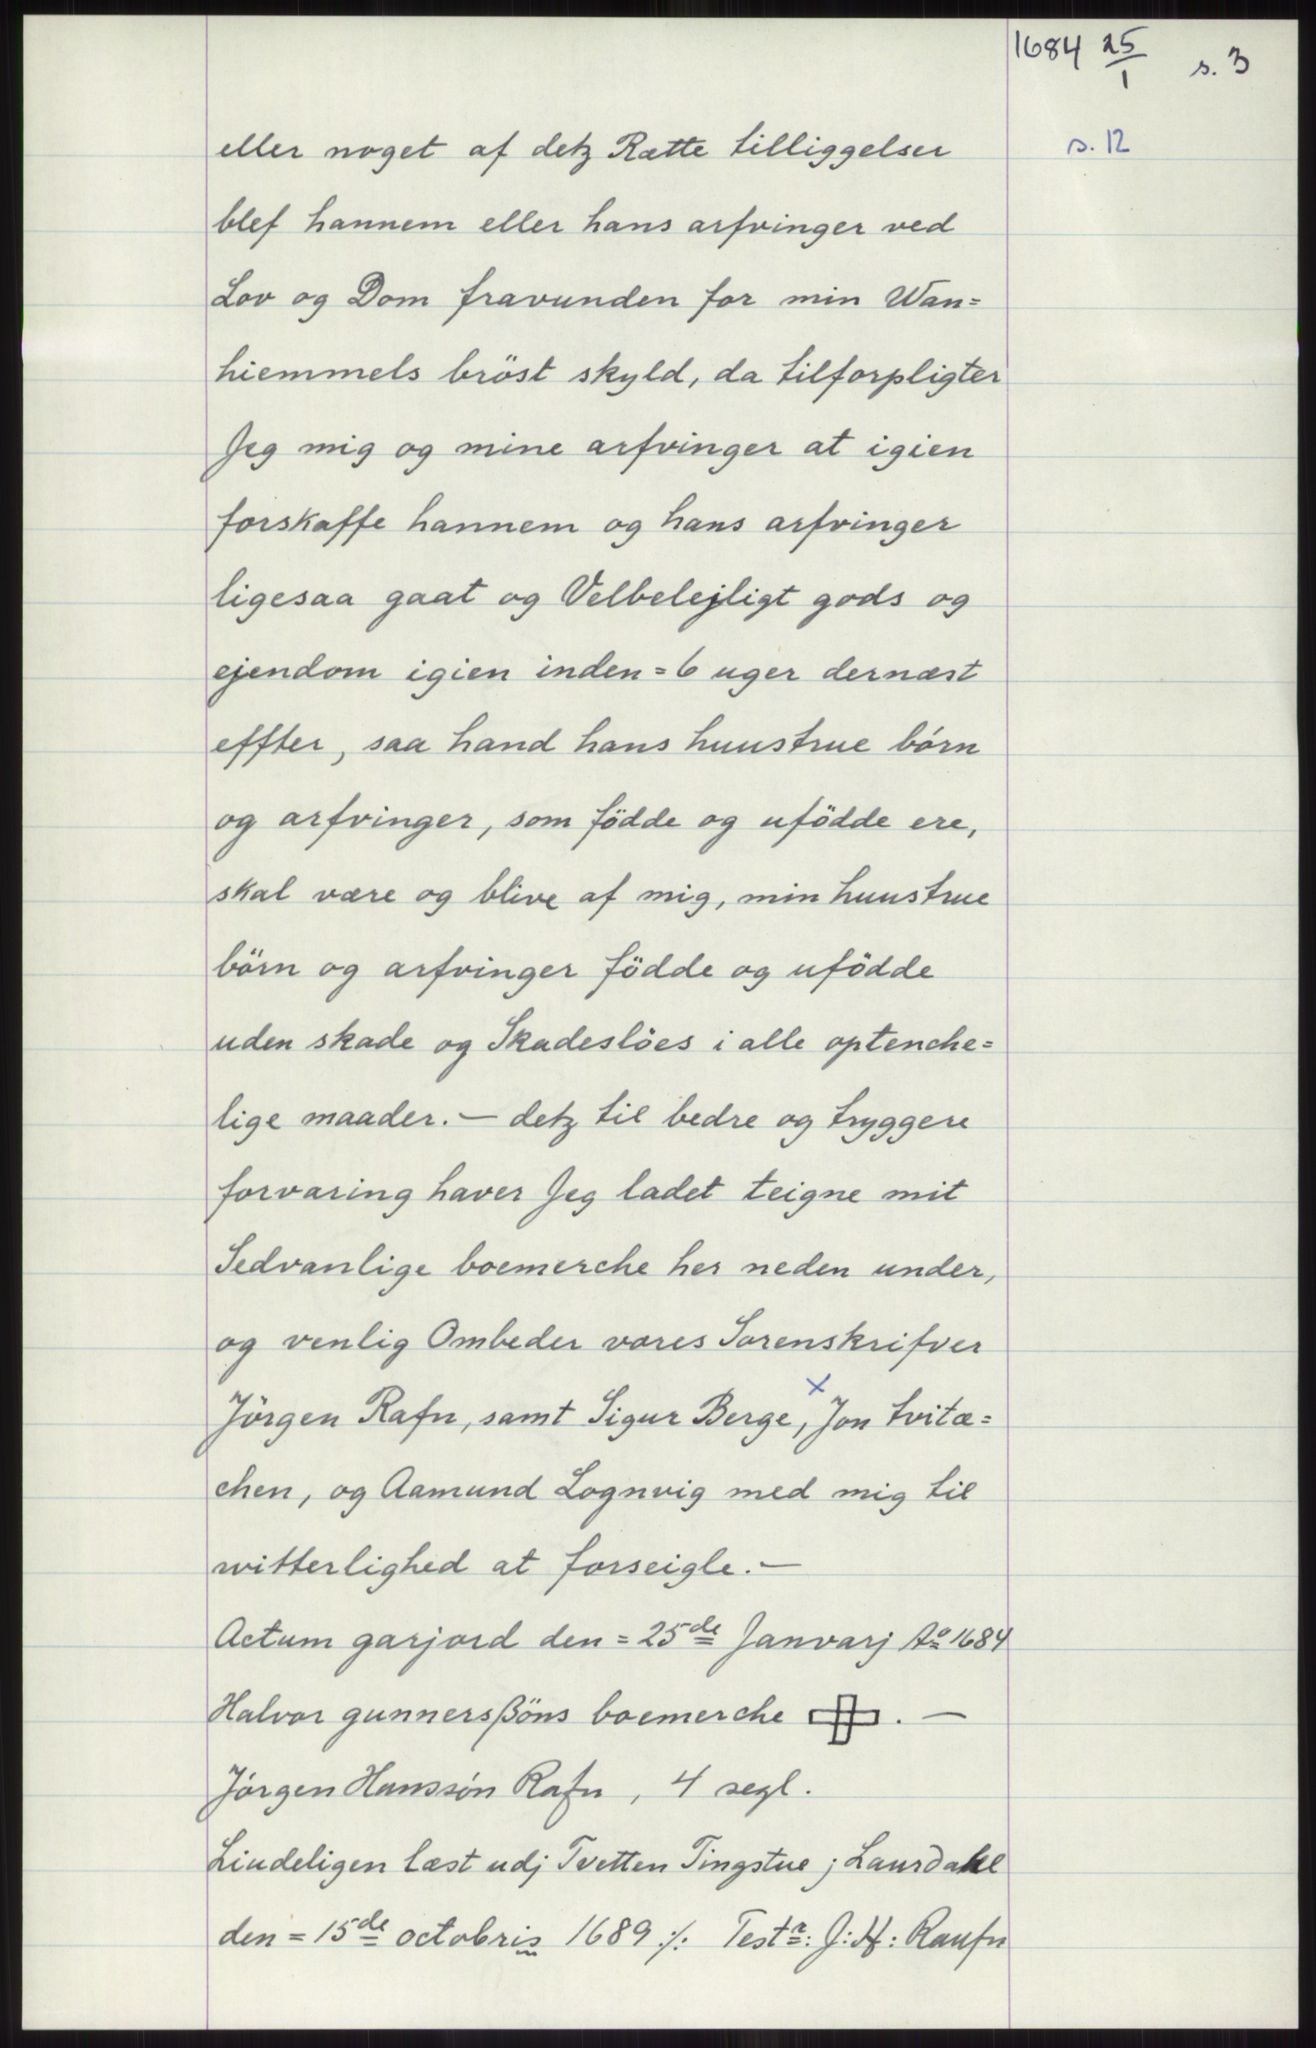 1684 25/1 s. 3
s. 12
eller noget af detz Rætte tilliggelser
blef hannem eller hans arfvinger ved
Lov og Dom fravunden for min Wan=
hiemmels bröst skyld, da tilforpligter
Jeg mig og mine arfvinger at igien
forskaffe hannem og hans arfvinger
ligesaa gaat og Velbelejligt gods og
ejendom igien inden = 6 uger dernæst
effter, saa hand hans huustrue börn
og arfvinger, som födde og ufödde ere,
skal være og blive af mig, min huustrue
börn og arfvinger födde og ufödde
uden skade og Skadeslöes i alle optenche=
lige maader. — detz til bedre og tryggere
forvaring haver Jeg ladet teigne mit
Sedvanlige boemerche her neden under,
og venlig Ombeder vores Sorenskrifver
Jörgen Rafn, samt Sigur Berge, x Jon tvitæ=
chen, og Aamund Lognvig med mig til
witterlighed at forseigle. —
Actum garjord den = 25de Janvarj Ao 1684
Halvor gunnersßöns boemerche . —
Jörgen Hanssön Rafn, 4 segl.
Liudeligen læst udj Tvetten Tingstue j Laurdahl
den = 15de octobris 1689 ./. Testr: J: H: Raufn